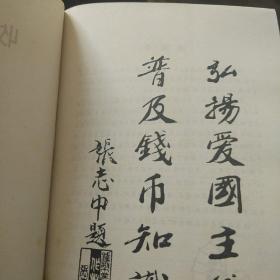 弘揚爱國主
普及錢币知識
張志中題